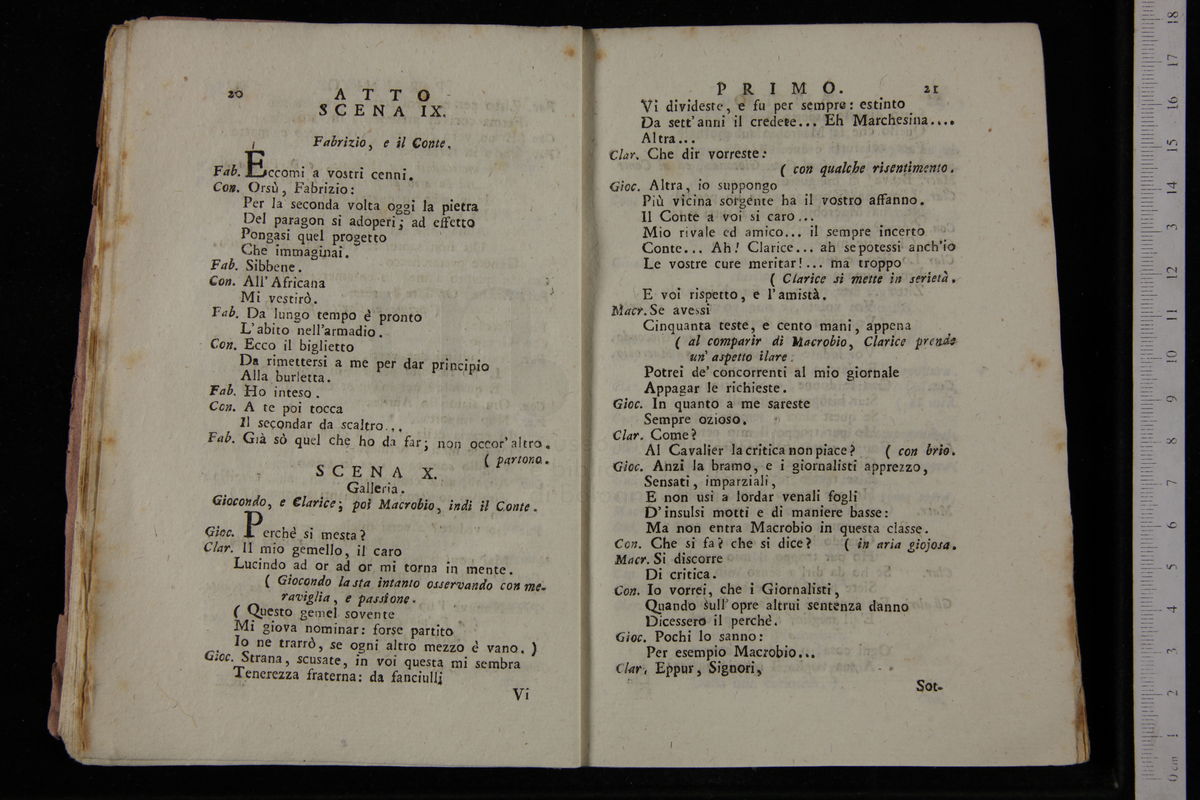 20 ATTO
SCENA IX.
Fabrizio, e il Conte.
Fab. Eccomi a vostri cenni.
Con. Orsù, Fabrizio:
Per la seconda volta oggi la pietra
Del paragon si adoperi; ad effetto
Pongasi quel progetto
Che immaginai.
Fab. Sibbene.
Con. All'Africana
Mi vestirò.
Fab. Da lungo tempo è pronto
L'abito nell'armadio.
Con. Ecco il biglietto
Da rimettersi a me per dar principio
Alla burletta.
Fab. Ho inteso.
Con. A te poi tocca
Il secondar da scaltro...
Fab. Già sò quel che ho da far; non occor'altro.
( partono.
SCENA X.
Galleria.
Giocondo, e Clarice; poi Macrobio, indi il Conte.
Gioc. Perchè si mesta?
Clar. Il mio gemello, il caro
Lucindo ad or ad or mi torna in mente.
( Giocondo la sta intanto osservando con me-
raviglia, e passione.
( Questo gemel sovente
Mi giova nominar: forse partito
Io ne trarrò, se ogni altro mezzo è vano. )
Gioc. Strana, scusate, in voi questa mi sembra
Tenerezza fraterna: da fanciulli
Vi
PRIMO. 21
Vi divideste, e fu per sempre: estinto
Da sett'anni il credete... Eh Marchesina....
Altra...
Clar. Che dir vorreste:
( con qualche risentimento.
Gioc. Altra, io suppongo
Più vicina sorgente ha il vostro affanno.
Il Conte a voi si caro...
Mio rivale ed amico... il sempre incerto
Conte... Ah! Clarice... ah se potessi anch'io
Le vostre cure meritar!... ma troppo
( Clarice si mette in serietà.
E voi rispetto, e l'amistà.
Macr. Se avessi
Cinquanta teste, e cento mani, appena
( al comparir di Macrobio, Clarice prende
un' aspetto ilare.
Potrei de' concorrenti al mio giornale
Appagar le richieste.
Gioc. In quanto a me sareste
Sempre ozioso.
Clar. Come?
Al Cavalier la critica non piace? ( con brio.
Gioc. Anzi la bramo, e i giornalisti apprezzo,
Sensati, imparziali,
E non usi a lordar venali fogli
D'insulsi motti e di maniere basse:
Ma non entra Macrobio in questa classe.
Con. Che si fa? che si dice? ( in aria giojosa.
Macr. Si discorre
Di critica.
Con. Io vorrei, che i Giornalisti,
Quando sull'opre altrui sentenza danno
Dicessero il perchè.
Gioc. Pochi lo sanno:
Per esempio Macrobio...
Clar. Eppur, Signori,
Sot-
0 cm 1 2 3 4 5 6 7 8 9 10 11 12 3 14 15 16 17 18